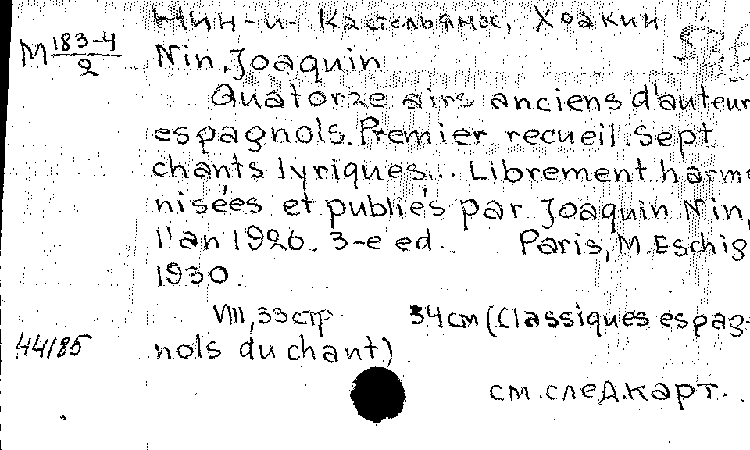 Нин-и- Кастельянос, Хоакин
М 183-4/2 Nin, Joaquin
Quatorze airs anciens d'auteur
espagnols. Premier recueil. Sept
chants lyriques... Librement harmo
nisées et publiés par Joaquin Nin,
l'an 1926. 3-e ed. Paris, M. Eschig
1930.
VIII, 33 стр 34 см (Classiques espag-
44185 nols du chant)
см. след. карт.